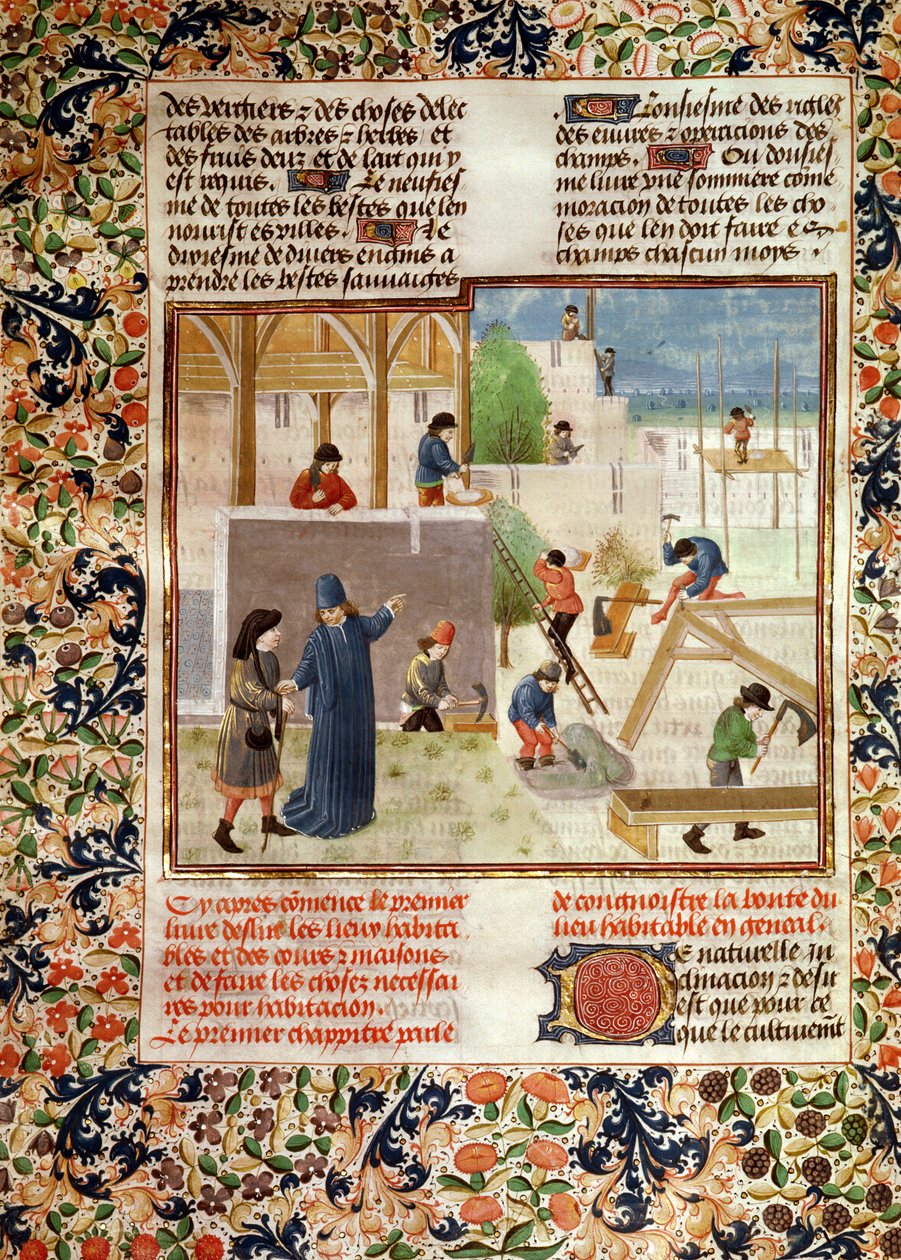 des vergiers ⁊ des choses delec
tables des arbres ⁊ herbes, et
des fruis deux et de lart qui y
est requis. Le neufies
me de toutes les bestes que len
nourist es villes. Le
diziesme de divers engins a
prendre les bestes sauvaiges
Lonsiesme des rigles
des euures ⁊ operacions des
champs. Ou dousies
me livre vne sommiere come
moracion de toutes les cho
ses que len doit faire es
champs chascun moys.
Cy apres cōmence le premier
livre dessus les lieux habita
bles et des cours ⁊ maisons
et de faire les choses necessai
res pour habitacion.
Le premier chappitre parle
de congnoistre la bonte du
lieu habitable en general.
De naturelle in
clinacion ⁊ desir
est que pour ce
que le cultivemēt